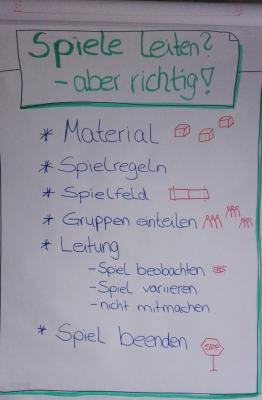 Spiele leiten?
- aber richtig!
* Material
* Spielregeln
* Spielfeld
* Gruppen einteilen
* Leitung
- Spiel beobachten
- Spiel variieren
- nicht mitmachen
* Spiel beenden
STOP